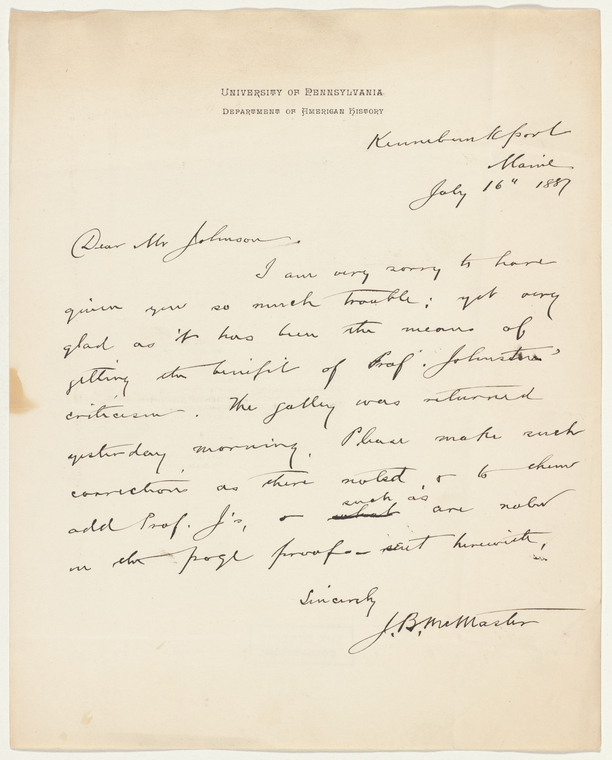 UNIVERSITY OF PENNSYLVANIA
DEPARTMENT OF AMERICAN HISTORY
Kennebunkport
Maine
July 16" 1887
Dear Mr Johnson.
I am very sorry to have
given you so much trouble; yet very
glad as it has been the means of
getting the benifit of Prof. Johnston's
criticism. The galley was returned
yesterday morning. Please make such
correction as there noted, & to them
add Prof. J's, & such as are noted
on the page proof – sent herewith.
Sincerely
J. B. McMaster